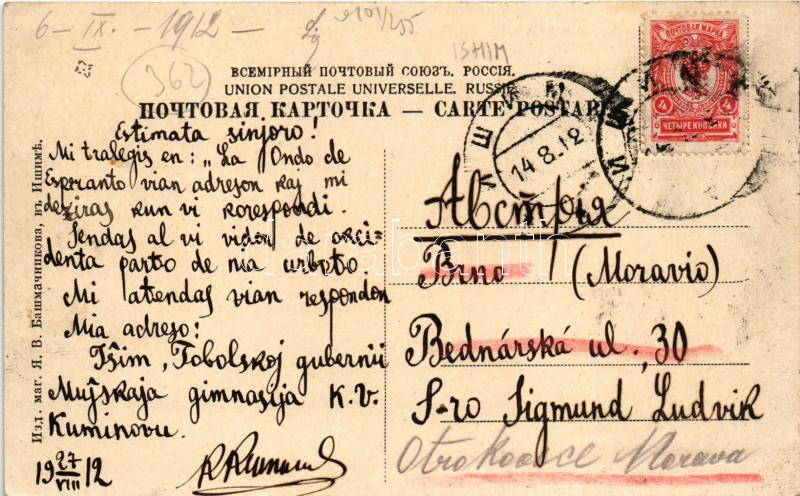 6-IX.-1912-
362
ISHIM
ВСЕМІРНЫЙ ПОЧТОВЫЙ СОЮЗЪ. РОССІЯ.
UNION POSTALE UNIVERSELLE. RUSSIE.
ПОЧТОВАЯ КАРТОЧКА — CARTE POSTALE
ПОЧТОВАЯ МАРКА
4 4
ЧЕТЫРЕ КОПѢЙКИ
ИШИМ
14.8.12
Изд. маг. Я. В. Башмачникова, въ Ишимѣ.
Estimata sinjoro!
Mi tralegis en: „La Ondo de
Esperanto vian adreson kaj mi
deziras kun vi korespondi.
Sendas al vi vidon de okci-
denta parto de nia urbeto.
Mi atendas vian respondon
Mia adreso:
Iŝim, Tobolskoj gubernii
Muĵskaja gimnasija K. V.
Kuminovu.
19 27/VIII 12
Австрія
Brno (Moravio)
Bednárská ul. 30
S-ro Sigmund Ludvik
Otrokovice Morava
darabanth